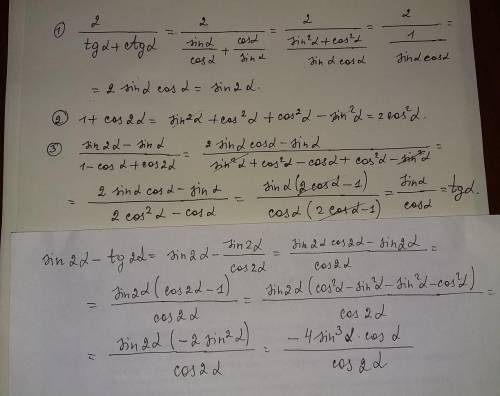 ① 2/(tgα + ctgα) = 2/(sinα/cosα + cosα/sinα) = 2/((sin²α + cos²α)/(sinα cosα)) = 2/(1/(sinα cosα)) =
= 2 sinα cosα = sin2α.
② 1 + cos2α = sin²α + cos²α + cos²α − sin²α = 2cos²α.
③ (sin2α − sinα)/(1 − cosα + cos2α) = (2 sinα cosα − sinα)/(sin²α + cos²α − cosα + cos²α − sin²α) =
= (2 sinα cosα − sinα)/(2 cos²α − cosα) = sinα(2cosα − 1)/(cosα(2cosα − 1)) = sinα/cosα = tgα.
sin2α − tg2α = sin2α − sin2α/cos2α = (sin2α cos2α − sin2α)/cos2α =
= sin2α(cos2α − 1)/cos2α = sin2α(cos²α − sin²α − sin²α − cos²α)/cos2α =
= sin2α(−2 sin²α)/cos2α = −4 sin³α · cosα/cos2α